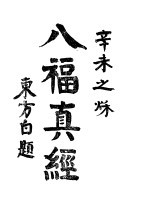 辛未之秌
八福真經
東方白題